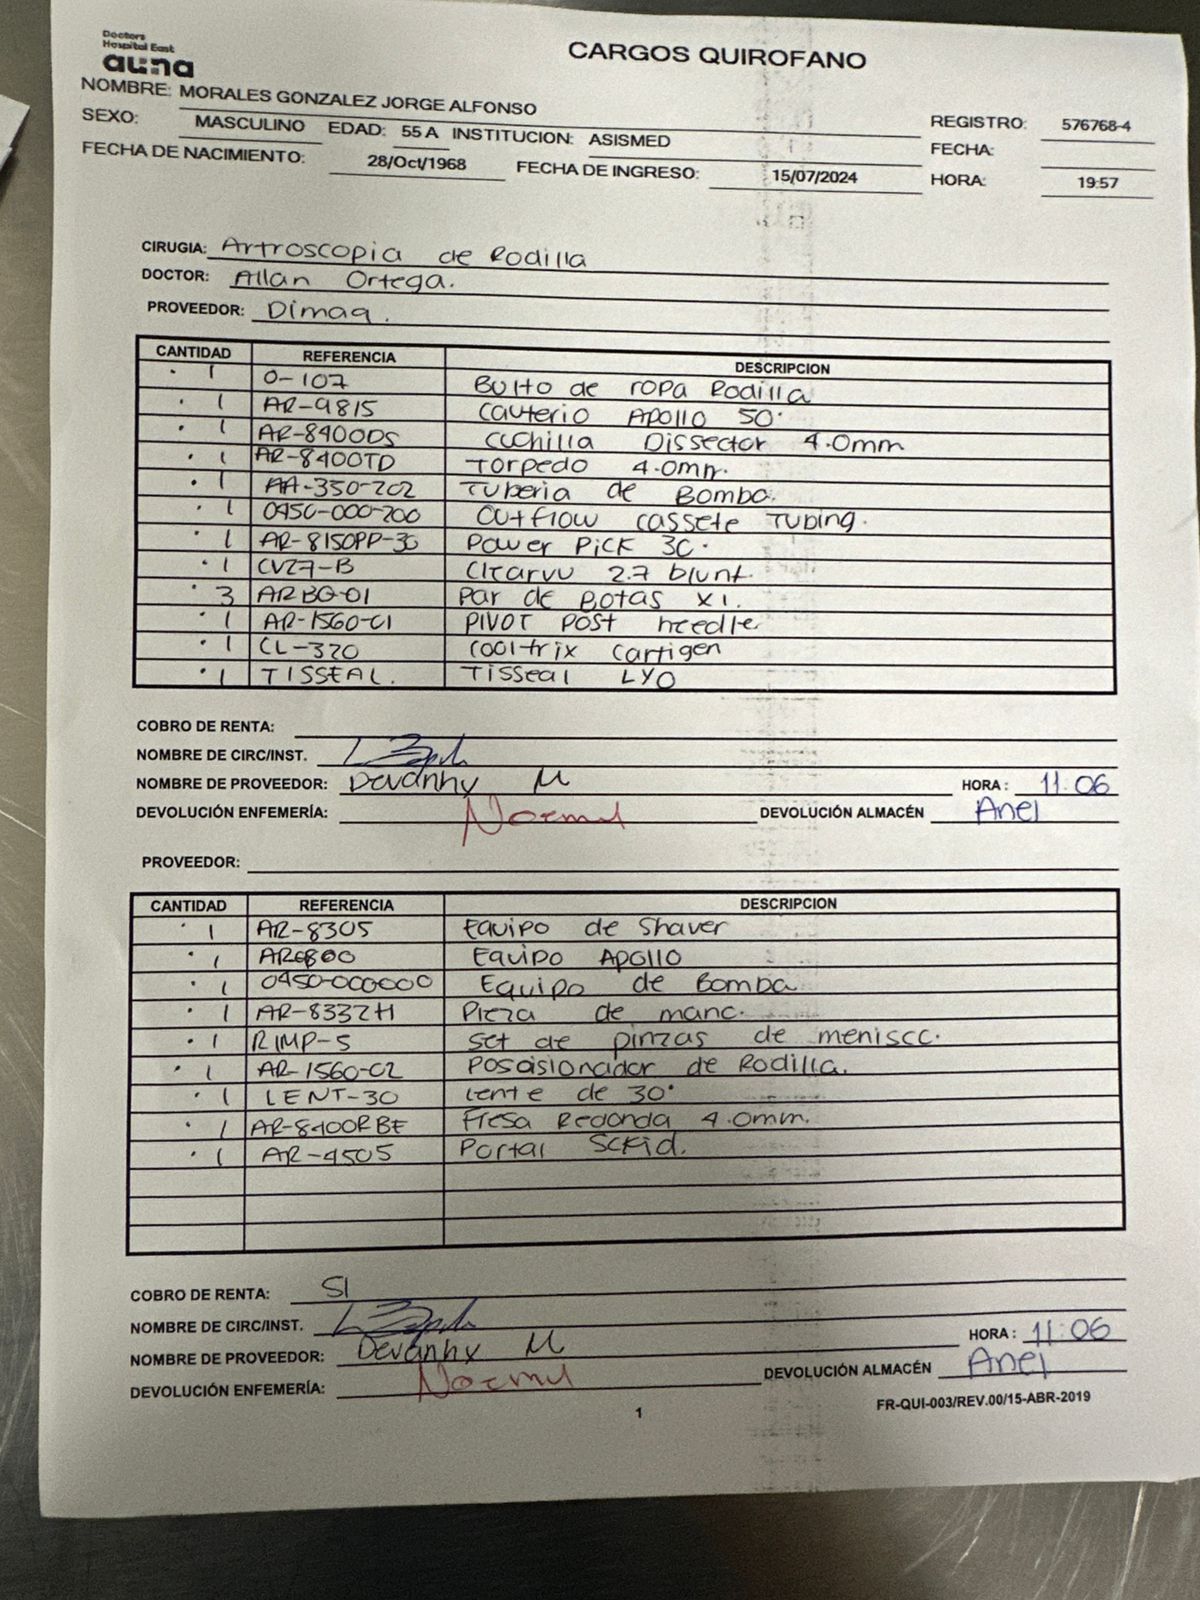 Doctors
Hospital East
auna
CARGOS QUIROFANO
NOMBRE: MORALES GONZALEZ JORGE ALFONSO
SEXO: MASCULINO EDAD: 55 A INSTITUCION: ASISMED REGISTRO: 576768-4
FECHA:
FECHA DE NACIMIENTO: 28/Oct/1968 FECHA DE INGRESO: 15/07/2024 HORA: 19:57
CIRUGIA: Artroscopia de Rodilla
DOCTOR: Allan Ortega.
PROVEEDOR: Dimaq.
CANTIDAD REFERENCIA DESCRIPCION
1 0-107 Bulto de ropa Rodilla
1 AR-9815 Cauterio Apollo 50°
1 AR-8400DS Cuchilla Dissector 4.0mm
1 AR-8400TD Torpedo 4.0mm.
1 AA-350-202 Tuberia de Bomba.
1 0450-000-200 Outflow cassete Tubing.
1 AR-8150PP-30 Power Pick 30°
1 CV27-B 2.7 blunt.
3 ARBG-01 Par de Botas x1.
1 AR-1560-01 PIVOT POST needle
1 CL-320 cooltrix Cartigen
1 TISSEAL. Tisseal LYO
COBRO DE RENTA:
NOMBRE DE CIRC/INST.
NOMBRE DE PROVEEDOR: Devanhy M HORA: 11:06
DEVOLUCIÓN ENFERMERÍA: DEVOLUCIÓN ALMACÉN Anel
PROVEEDOR:
CANTIDAD REFERENCIA DESCRIPCION
1 AR-8305 Equipo de Shaver
1 Equipo APOLLO
1 0450-000000 Equipo de Bomba
1 AR-8332H Pieza de mano.
1 RIMP-5 Set de pinzas de menisco.
1 AR-1560-02 Posasionador de Rodilla.
1 LENT-30 Lente de 30°
1 AR-8400RBE Fresa Redonda 4.0mm.
1 AR-4505 Portal Sckid.
COBRO DE RENTA: SI
NOMBRE DE CIRC/INST.
NOMBRE DE PROVEEDOR: Devanhy M HORA: 11:06
DEVOLUCIÓN ENFERMERÍA: DEVOLUCIÓN ALMACÉN Anel
1 FR-QUI-003/REV.00/15-ABR-2019